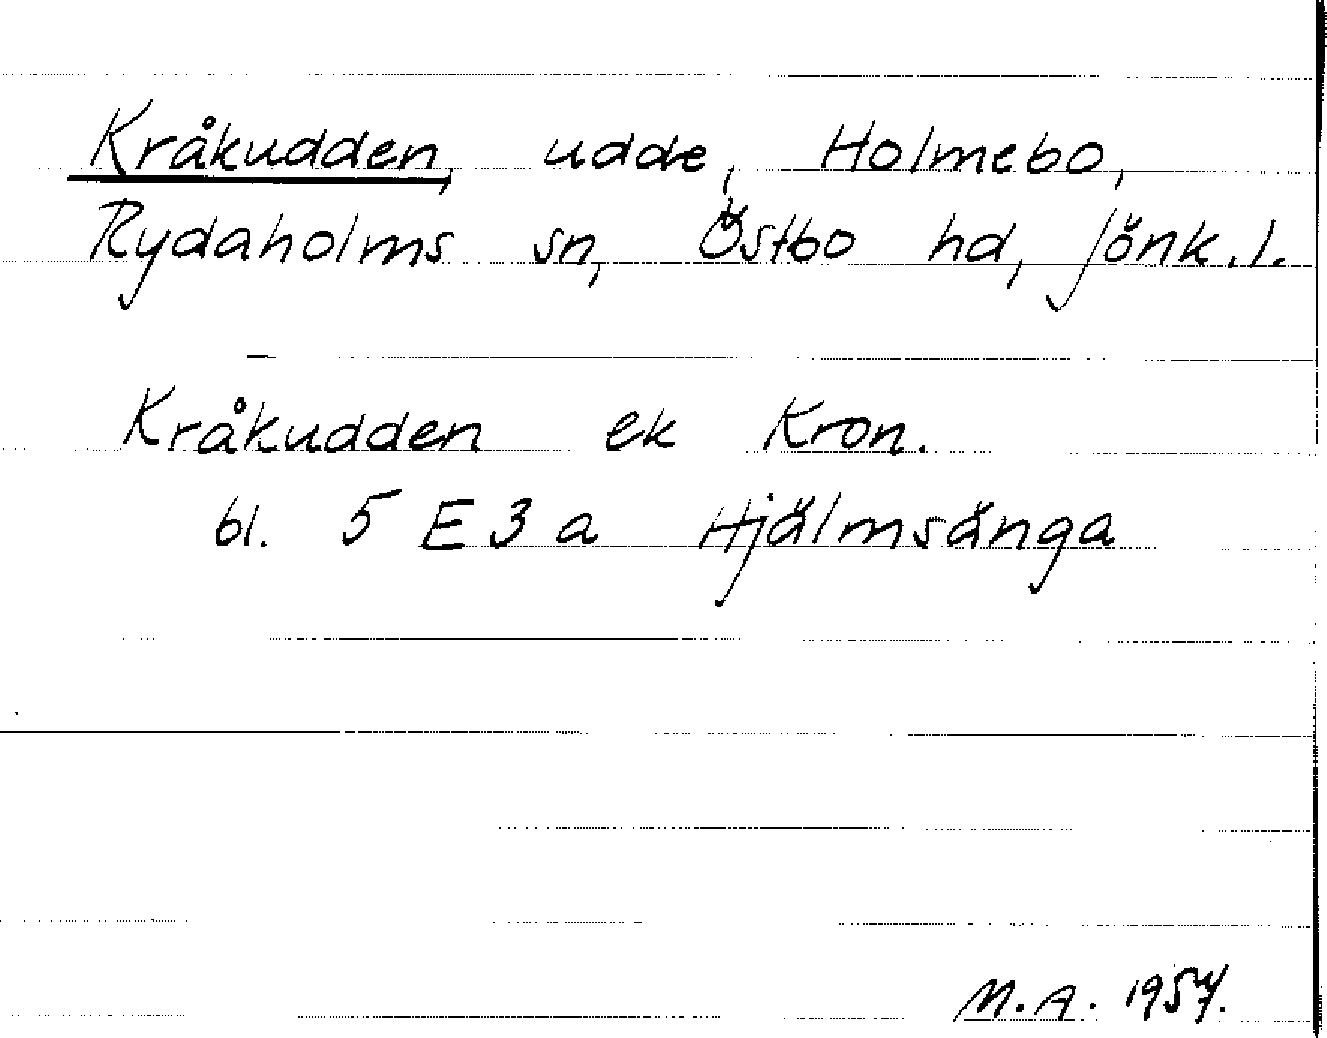 Kråkudden, udde, Holmebo,
Rydaholms sn, Östbo hd, Jönk.l.
Kråkudden ek Kron.
bl. 5 E 3 a Hjälmsänga
M.A. 1957.